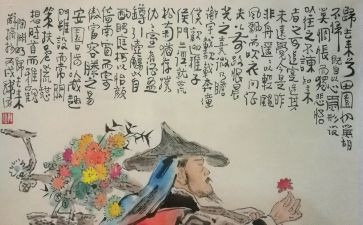 歸去來兮田園將蕪胡
不歸既自以心為形役
奚惆悵而獨悲悟
已往之不諫知來
者之可追實迷途其
未遠覺今是而昨
非舟遙遙以輕颺
風飄飄而吹衣問征
夫以前路恨晨
光之熹微乃瞻
衡宇載欣載奔僮
僕歡迎稚子
候門三徑就荒
松菊猶存攜幼
入室有酒盈樽
引壺觴以自
酌眄庭柯以怡顏
倚南窗以寄
傲審容膝之易
安園日涉以成趣
門雖設而常關
策扶老以流憩
時矯首而遐觀